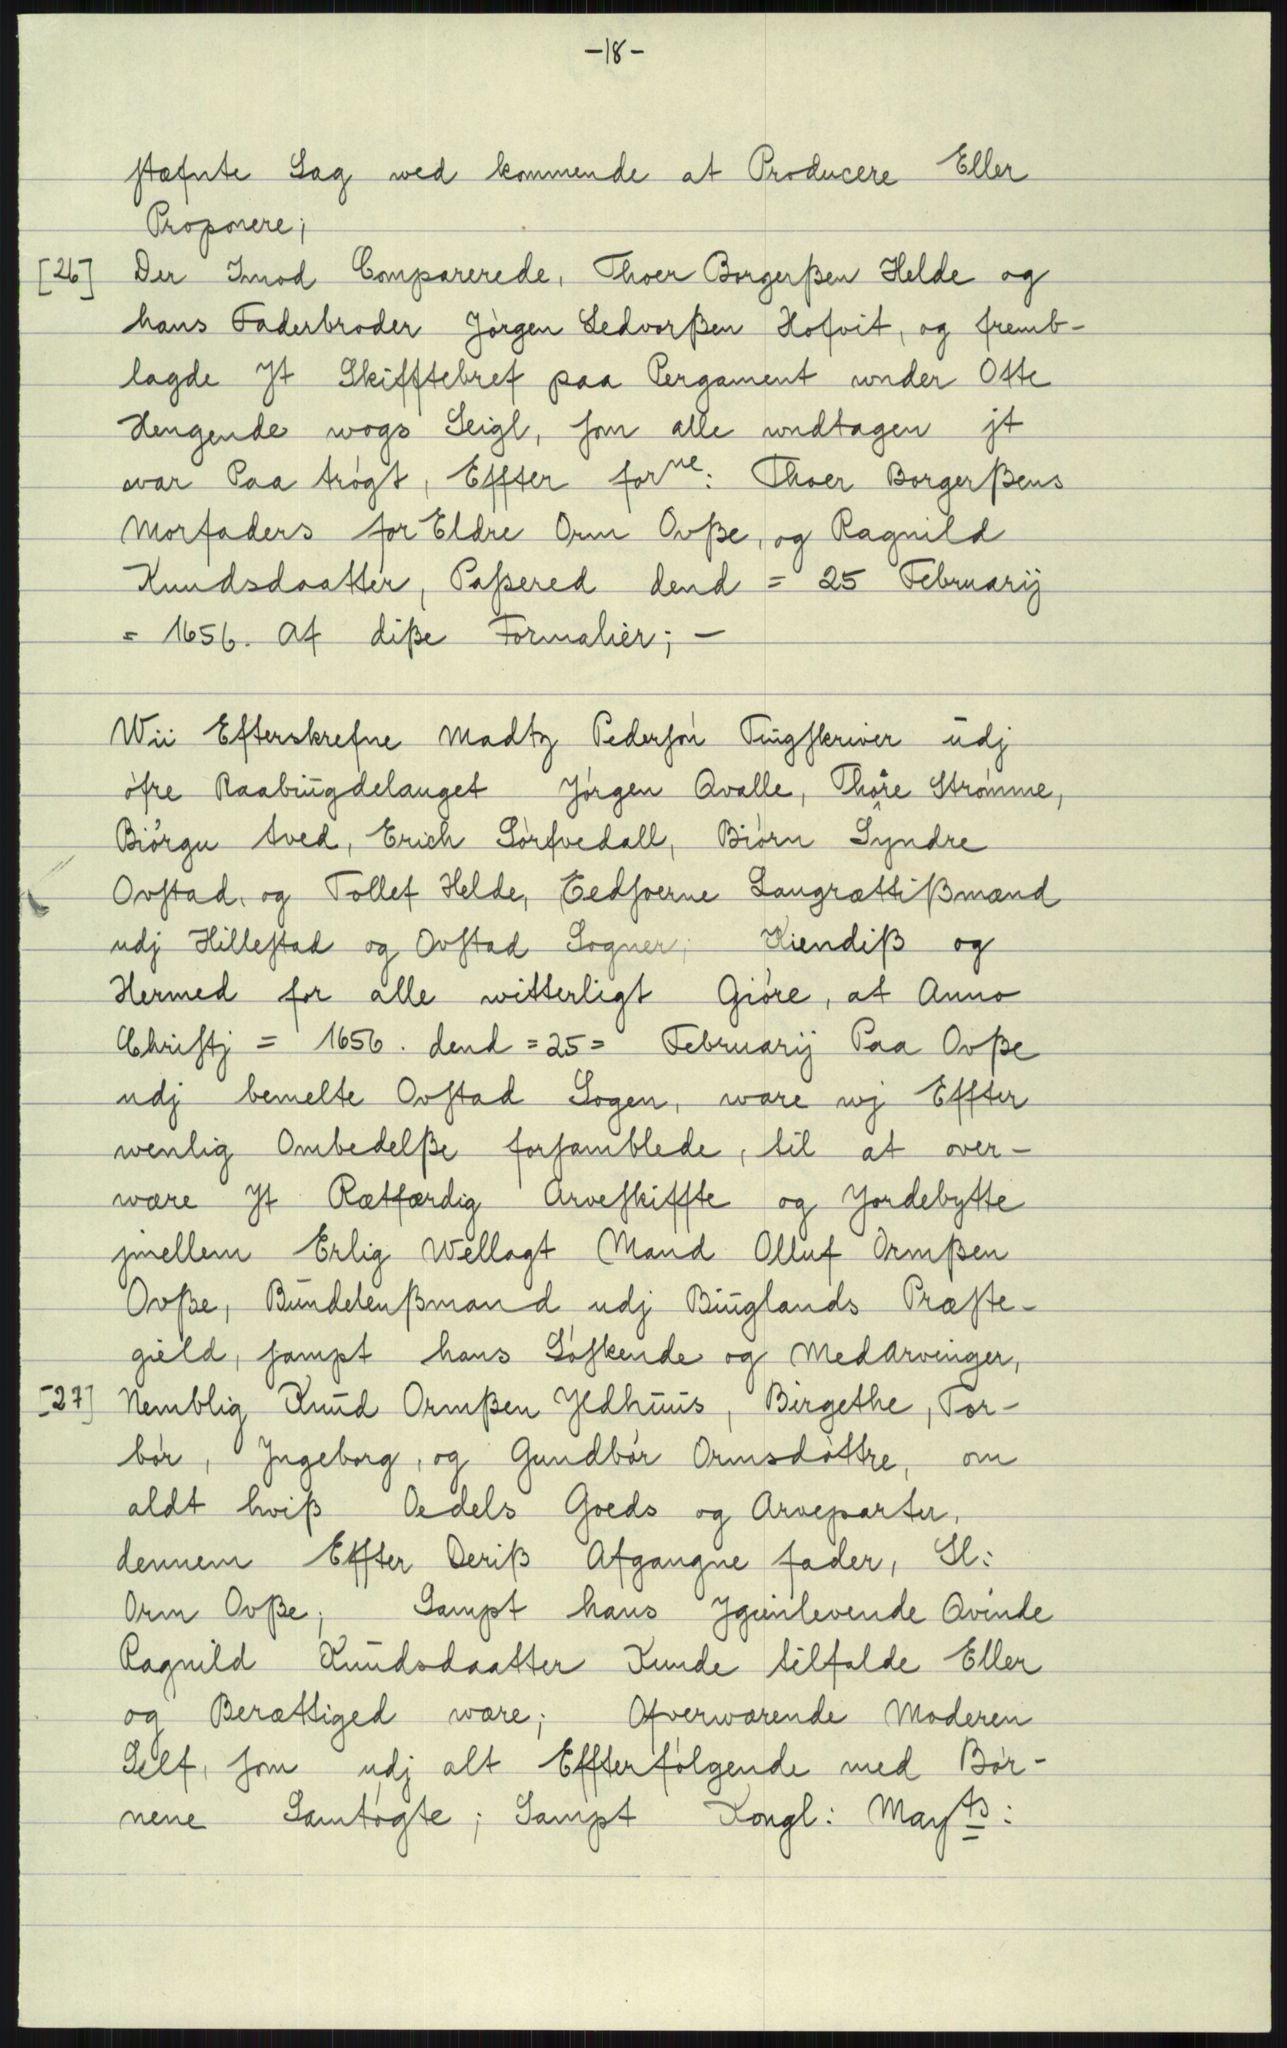 -18-
stæfnte Sag wed kommende at Producere Eller
Proponere;
[26] Der Imod Comparerede, Thoer Borgerßen Helde og
hans Faderbroder Jørgen Sedvorßen Hofvit, og fremb-
lagde Jt Skifftebref paa Pergament wnder Otte
Hengende wogs Seigl, som alle wndtagen jt
war Paa trøgt, Effter forne: Thoer Borgerßens
Morfaders forEldre Orm Ovße, og Ragnild
Knudsdaatter, Paßered dend = 25 Februarij
= 1656. Af diße Formalier; -
Wii Efterskrefne Madtz Pedersøn Tingskriver udj
øfre Raabiugdelauget Jørgen Qvalle, Thore Strømme,
Biørgu tved, Erich Sørfvedall, Biørn Syndre
Ovstad, og Tollef Helde, Eedsoerne Laugrættißmænd
udj Hillestad og Ovstad Sogner, Kiendiß og
Hermed for alle witterligt Giøre, at Anno
Christj = 1656. dend = 25 = Februarij Paa Ovße
udj bemelte Ovstad Sogen, ware wj Effter
wenlig Ombedelße forsamblede, til at over-
wære Jt Rætfærdig Arveskiffte og Jordebytte
jmellem Erlig Wellagt Mand Olluf Ormßen
Ovße, Bundelenßmand udj Biuglands Præste-
gield, sampt hans Søskende og MedArvinger,
[27] Nemblig Knud Ormßen Jldhuus, Birgethe, Tor-
bør, Jngeborg, og Gundbør Ormsdøttre, om
aldt hviß Oedels Goeds og Arveparter,
dennem Effter Deriß Afgangne fader, Sl:
Orm Ovße; Sampt hans Jgienlevende Qvinde
Ragnild Knudsdaatter Kunde tilfalde Eller
og Berættiged wære; Ofverwærende Moderen
Self, som udj alt Effterfølgende med Bør-
nene Samtøgte; Sampt Kongl: Mayts: